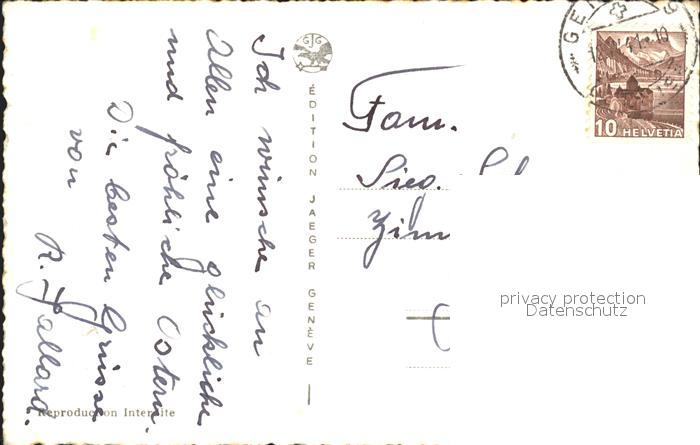 Ich wünsche an
Allen eine glückliche
und fröhliche Ostern.
Die besten Grüsse
von
R. Jallard.
GJG
ÉDITION JAEGER GENÈVE
Reproduction Interdite
Fam.
Sieg.
Zim
10 HELVETIA
privacy protection
Datenschutz